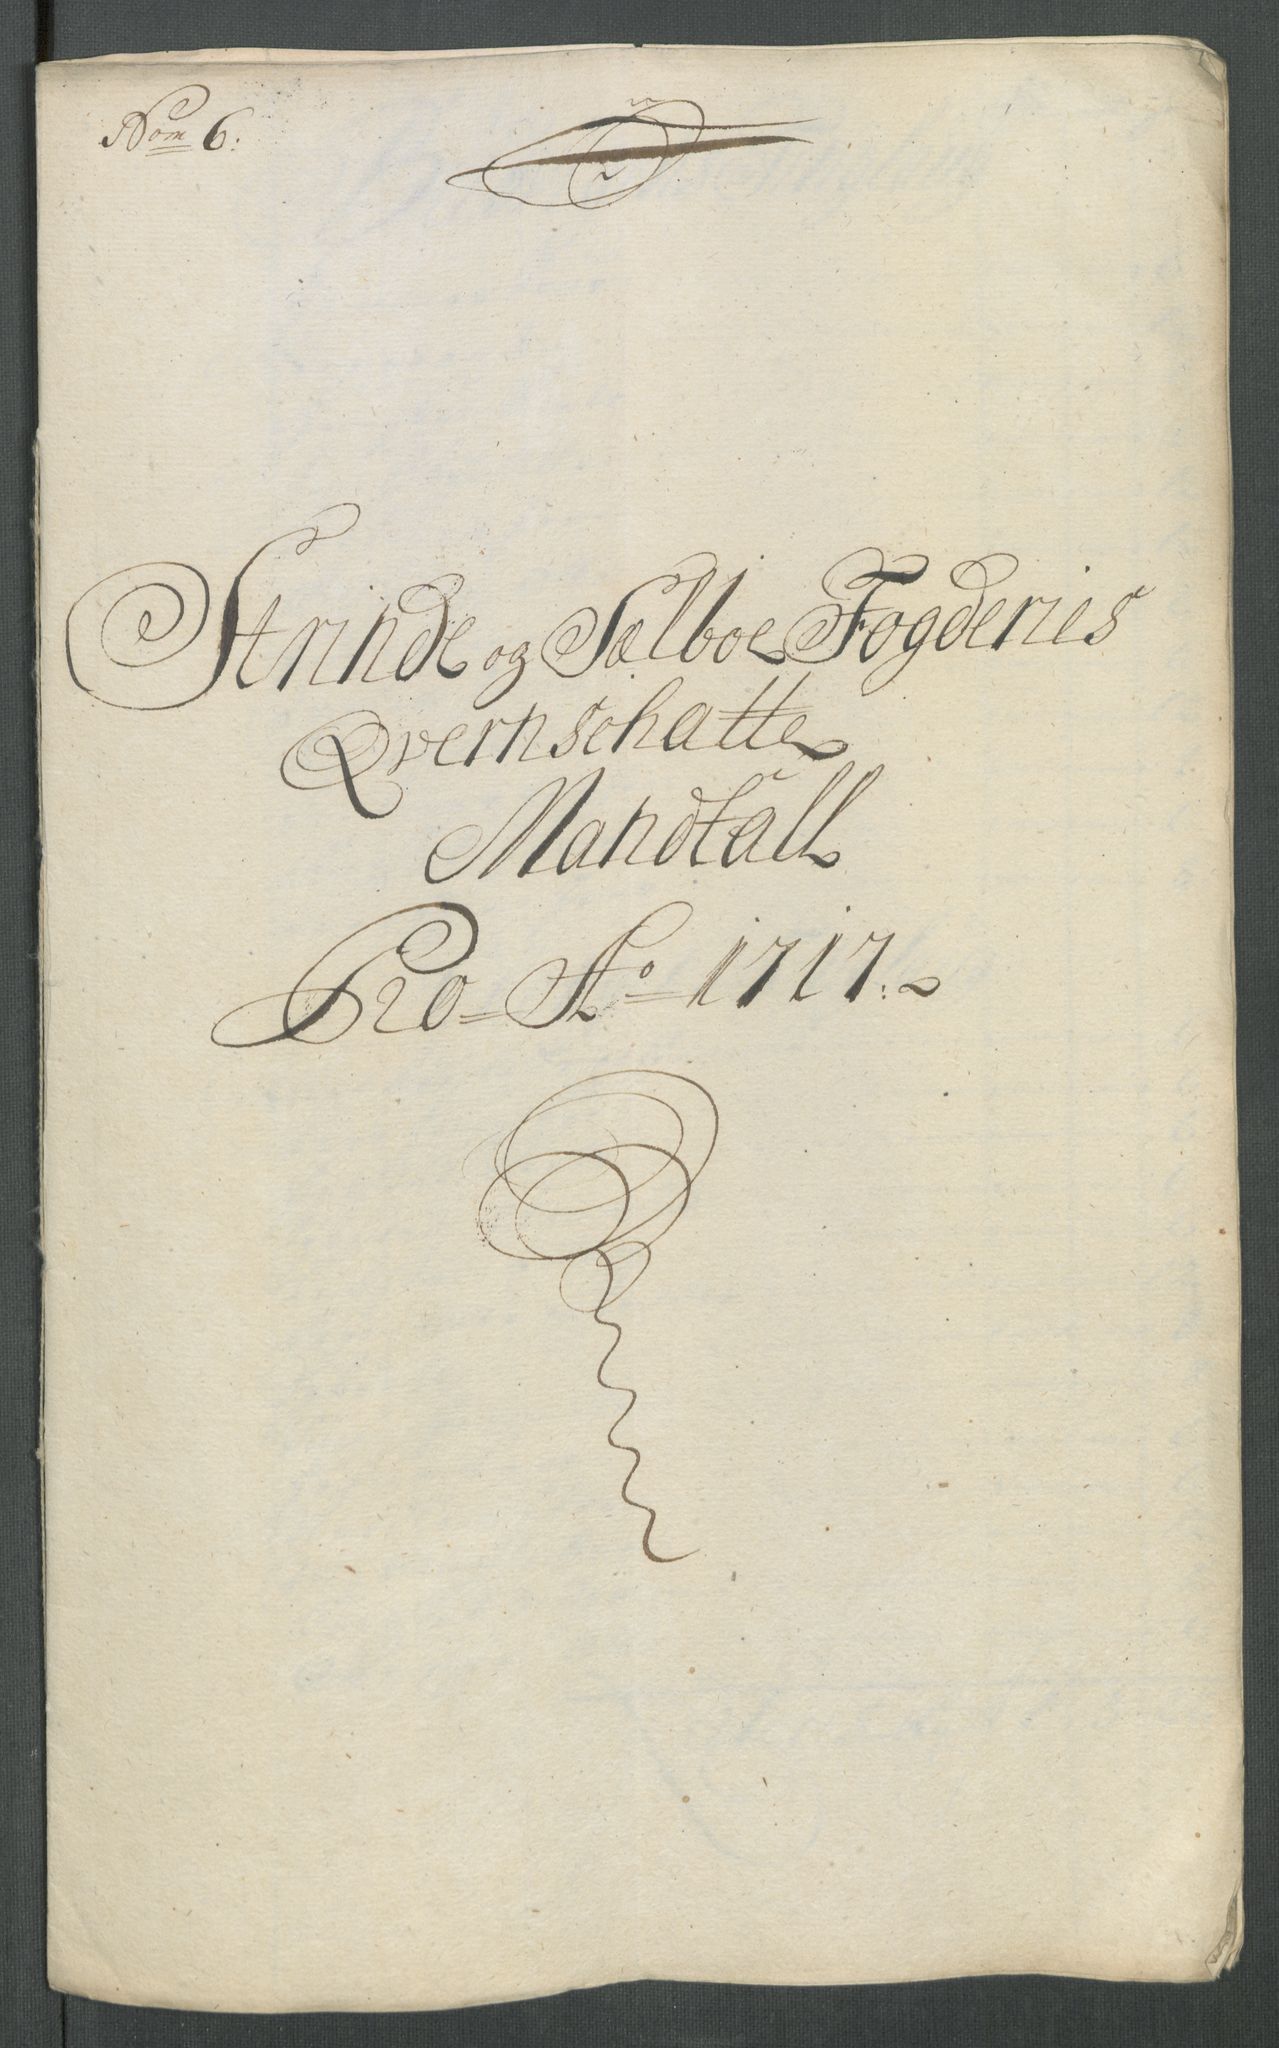 Nom 6:
Strinde og Sælboe Fogderies
Qvernschatte
Mandtall
Pro Ao 1717.